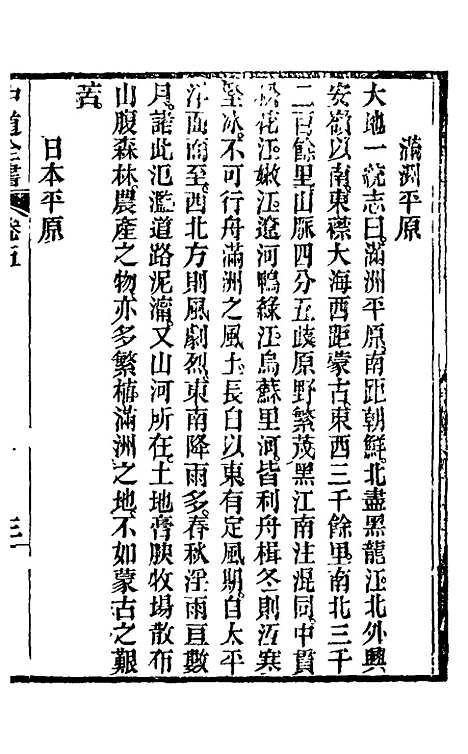 滿洲平原
大地一統志曰。滿洲平原。南距朝鮮。北盡黑龍江。北外興
安嶺以南。東濱大海。西距蒙古。東西三千餘里。南北三千
二百餘里。山脈四分五歧。原野繁茂。黑江南注混同。中貫
松花江嫩江遼河鴨綠江烏蘇里河。皆利舟楫。冬則沍寒
堅冰。不可行舟。滿洲之風土。長白以東。有定風期。自太平
洋面而至。西北方則風劇烈。東南降雨多。春秋淫雨亘數
月。諸此氾濫。道路泥濘。又山河所在。土地膏腴。牧場散布。
山腹森林。農產之物。亦多繁植。滿洲之地。不如蒙古之艱
苦。
日本平原
中道全書 卷五 三